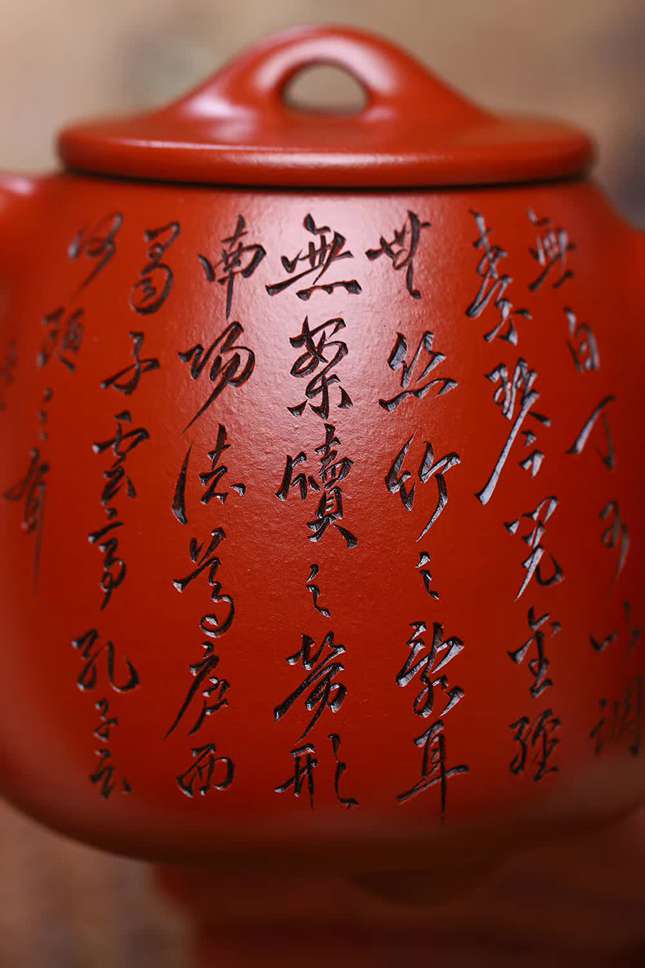 無白丁可以調
素琴閱金經
無絲竹之亂耳
無案牘之勞形
南陽諸葛廬西
蜀子雲亭孔子云
何陋之有